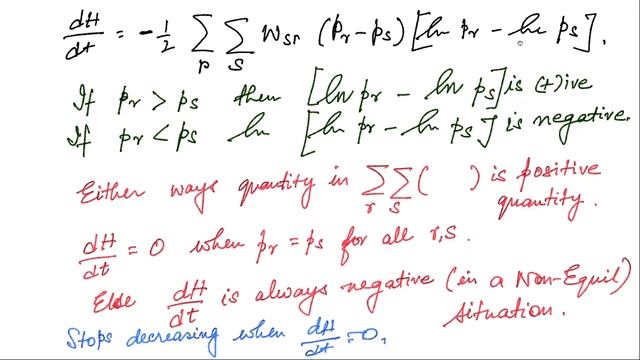 dH/dt = - 1/2 ∑_r ∑_s W_sr (P_r - P_s) [ln p_r - ln p_s].
If p_r > p_s then [ln p_r - ln p_s] is (+)ive
If p_r < p_s ln [ln p_r - ln p_s] is negative.
Either ways quantity in ∑_r ∑_s ( ) is positive
quantity.
dH/dt = 0 when p_r = p_s for all r,s.
Else dH/dt is always negative (in a Non-Equil)
situation.
Stops decreasing when dH/dt = 0,